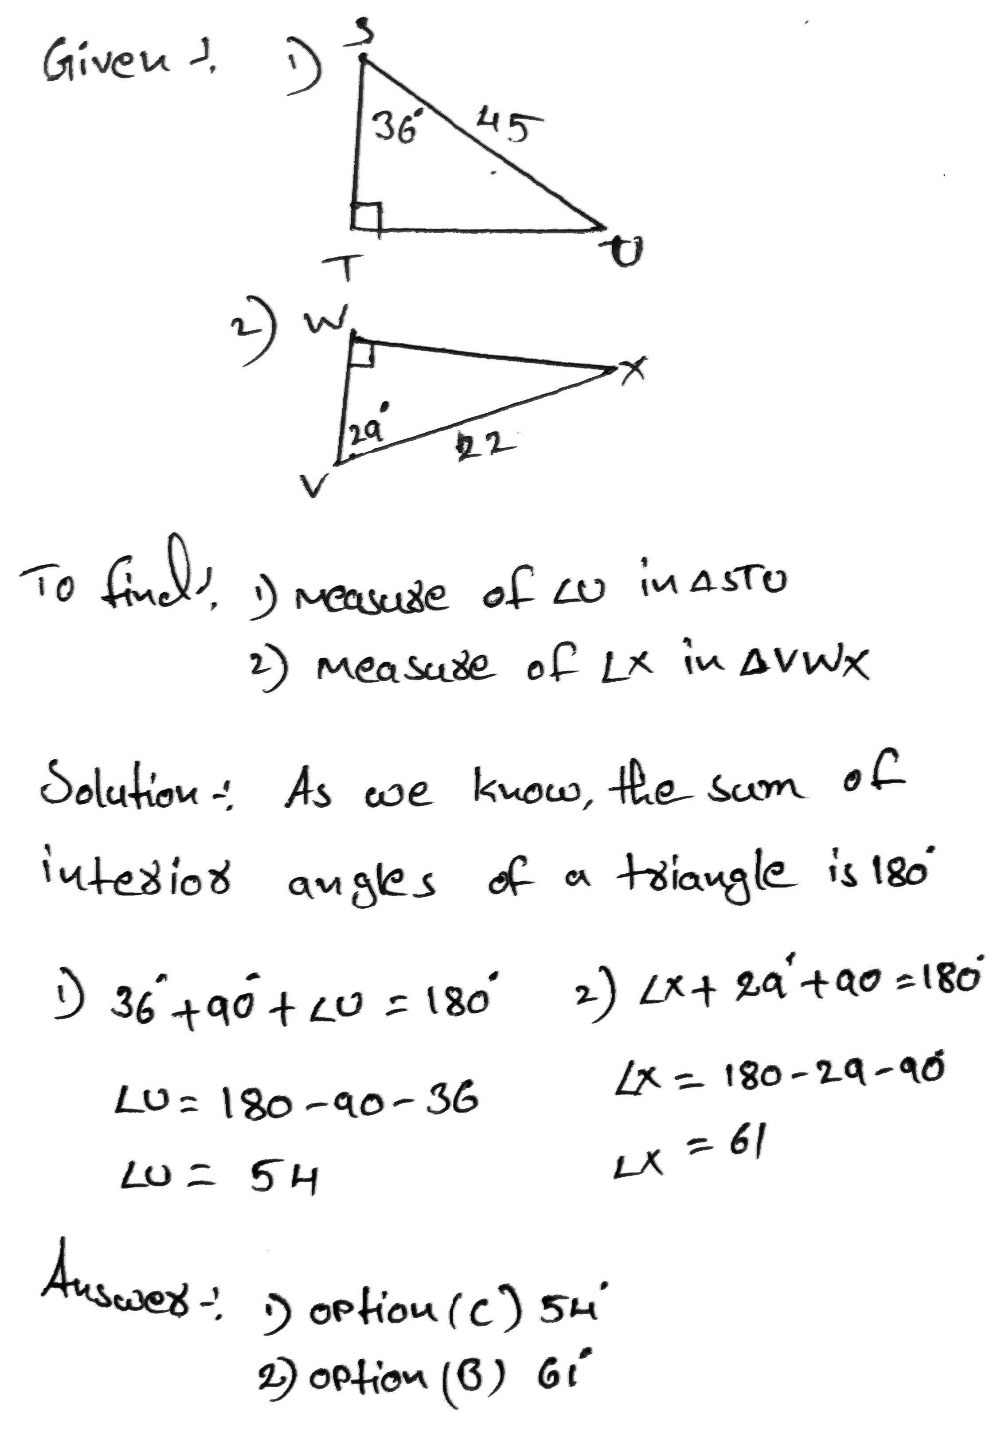 Given :- 1) S
36° 45
T U
2) W
X
29° 22
V
To find :- 1) measure of ∠U in ΔSTU
2) measure of ∠X in ΔVWX
Solution :- As we know, the sum of
interior angles of a triangle is 180°
1) 36° + 90° + ∠U = 180°
∠U = 180 - 90 - 36
∠U = 54
2) ∠X + 29° + 90 = 180°
∠X = 180 - 29 - 90°
∠X = 61
Answer :- 1) option (C) 54°
2) option (B) 61°